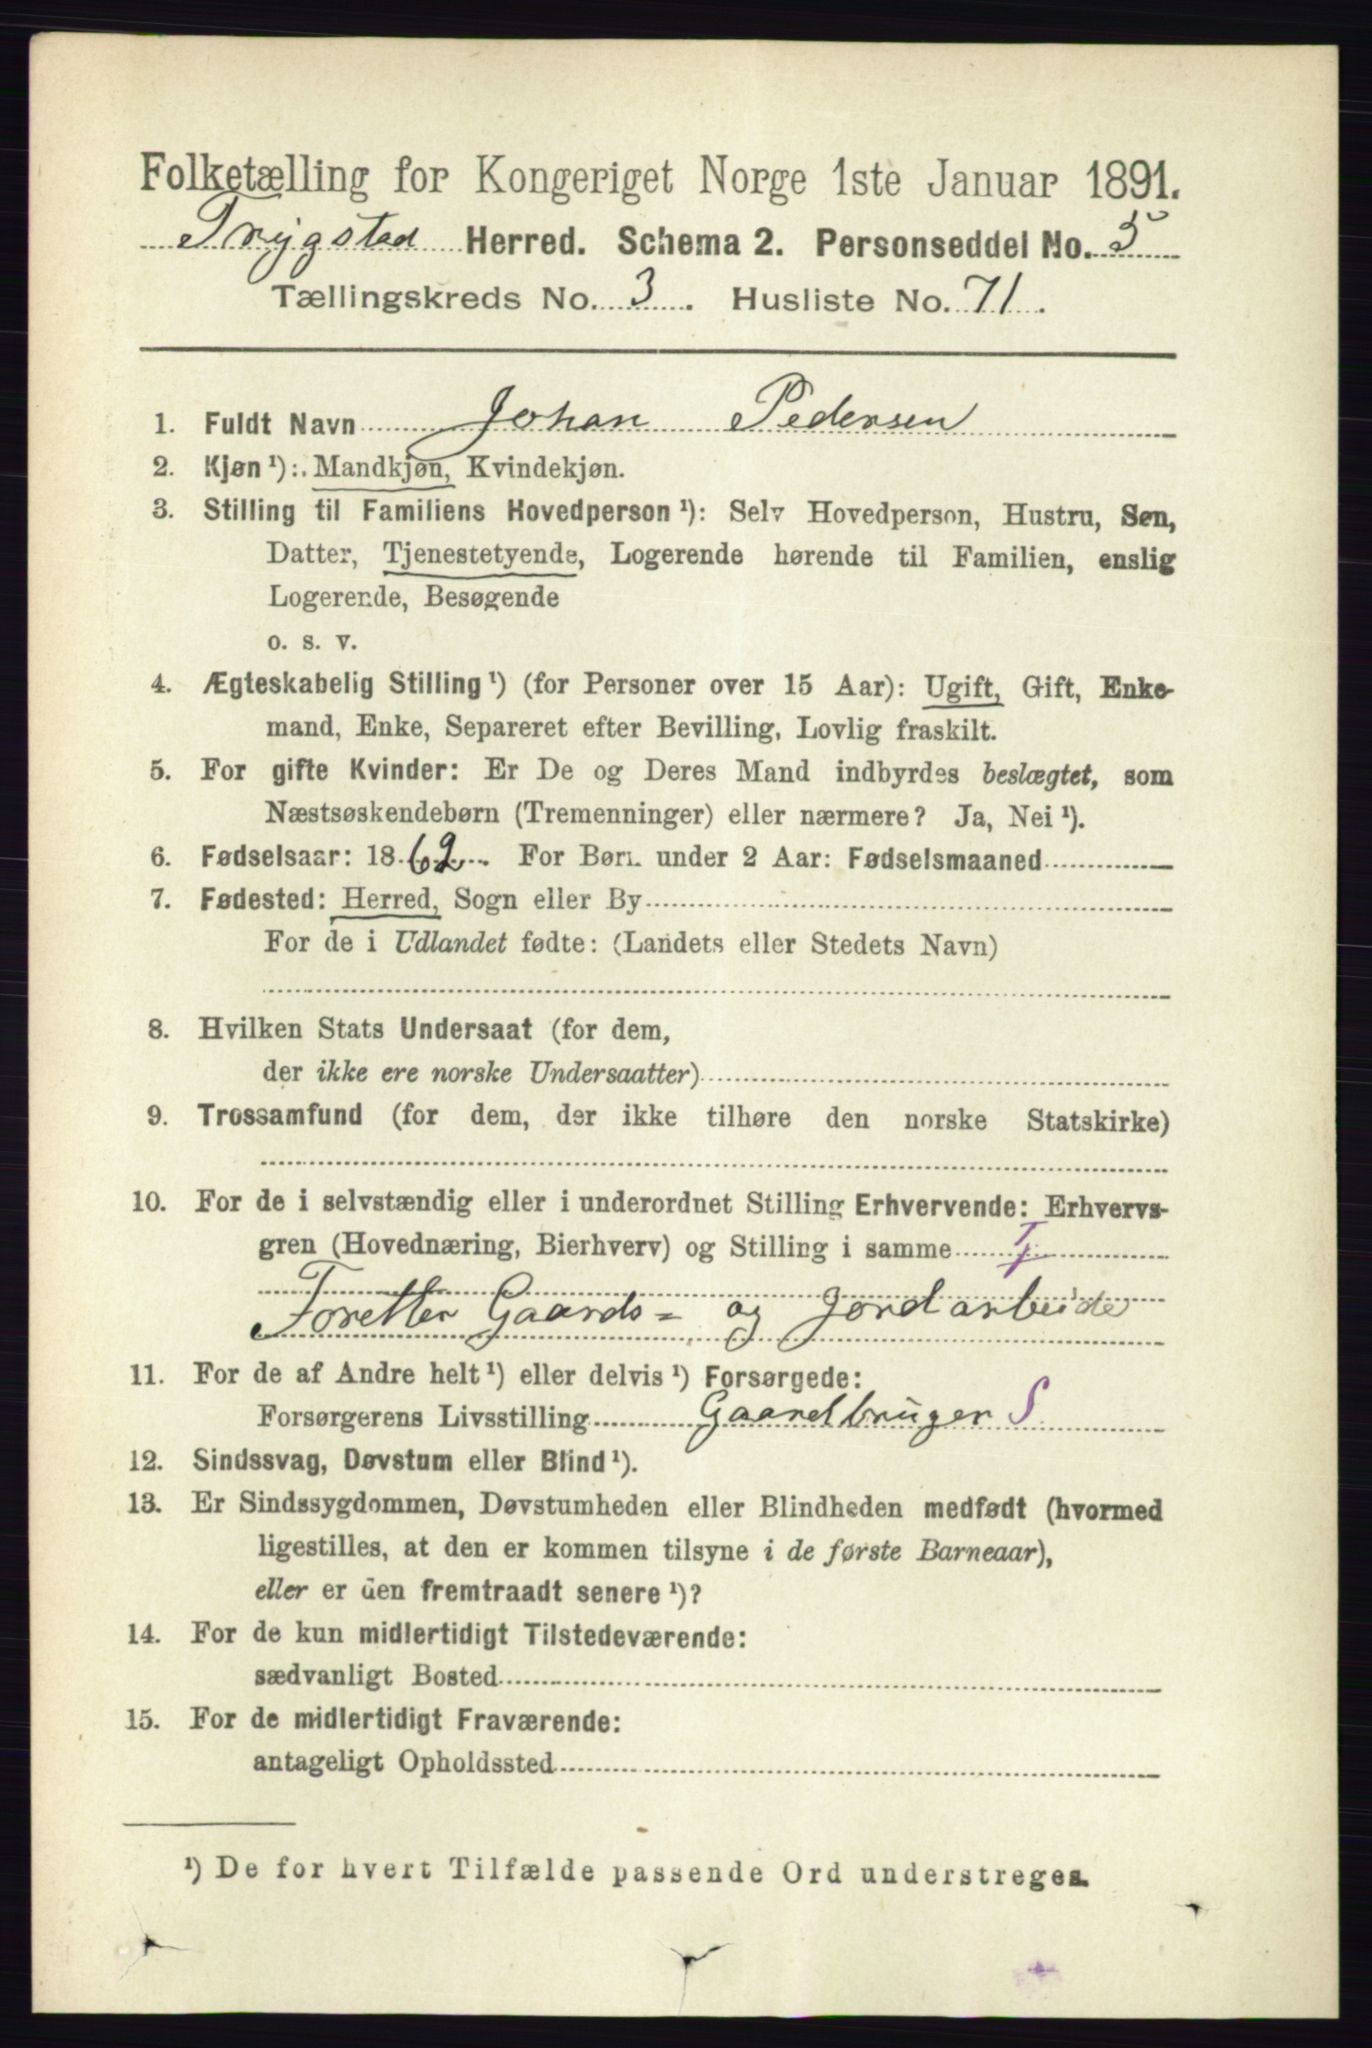 Folketælling for Kongeriget Norge 1ste Januar 1891.
Trygstad Herred. Schema 2. Personseddel No. 5
Tællingskreds No. 3. Husliste No. 71.
1. Fuldt Navn Johan Pedersen
2. Kjøn ¹): Mandkjøn, Kvindekjøn.
3. Stilling til Familiens Hovedperson ¹): Selv Hovedperson, Hustru, Søn,
Datter, Tjenestetyende, Logerende hørende til Familien, enslig
Logerende, Besøgende
o. s. v.
4. Ægteskabelig Stilling ¹) (for Personer over 15 Aar): Ugift, Gift, Enke-
mand, Enke, Separeret efter Bevilling, Lovlig fraskilt.
5. For gifte Kvinder: Er De og Deres Mand indbyrdes beslægtet, som
Næstsøskendebørn (Tremenninger) eller nærmere? Ja, Nei ¹).
6. Fødselsaar: 1862. For Børn under 2 Aar: Fødselsmaaned
7. Fødested: Herred, Sogn eller By
For de i Udlandet fødte: (Landets eller Stedets Navn)
8. Hvilken Stats Undersaat (for dem,
der ikke ere norske Undersaatter)
9. Trossamfund (for dem, der ikke tilhøre den norske Statskirke)
10. For de i selvstændig eller i underordnet Stilling Erhvervende: Erhvervs-
gren (Hovednæring, Bierhverv) og Stilling i samme Tj
Foretter Gaards= og Jordarbeide
11. For de af Andre helt ¹) eller delvis ¹) Forsørgede:
Forsørgerens Livsstilling Gaardbruger S
12. Sindssvag, Døvstum eller Blind ¹).
13. Er Sindssygdommen, Døvstumheden eller Blindheden medfødt (hvormed
ligestilles, at den er kommen tilsyne i de første Barneaar),
eller er den fremtraadt senere ¹)?
14. For de kun midlertidigt Tilstedeværende:
sædvanligt Bosted
15. For de midlertidigt Fraværende:
antageligt Opholdssted
¹) De for hvert Tilfælde passende Ord understreges.